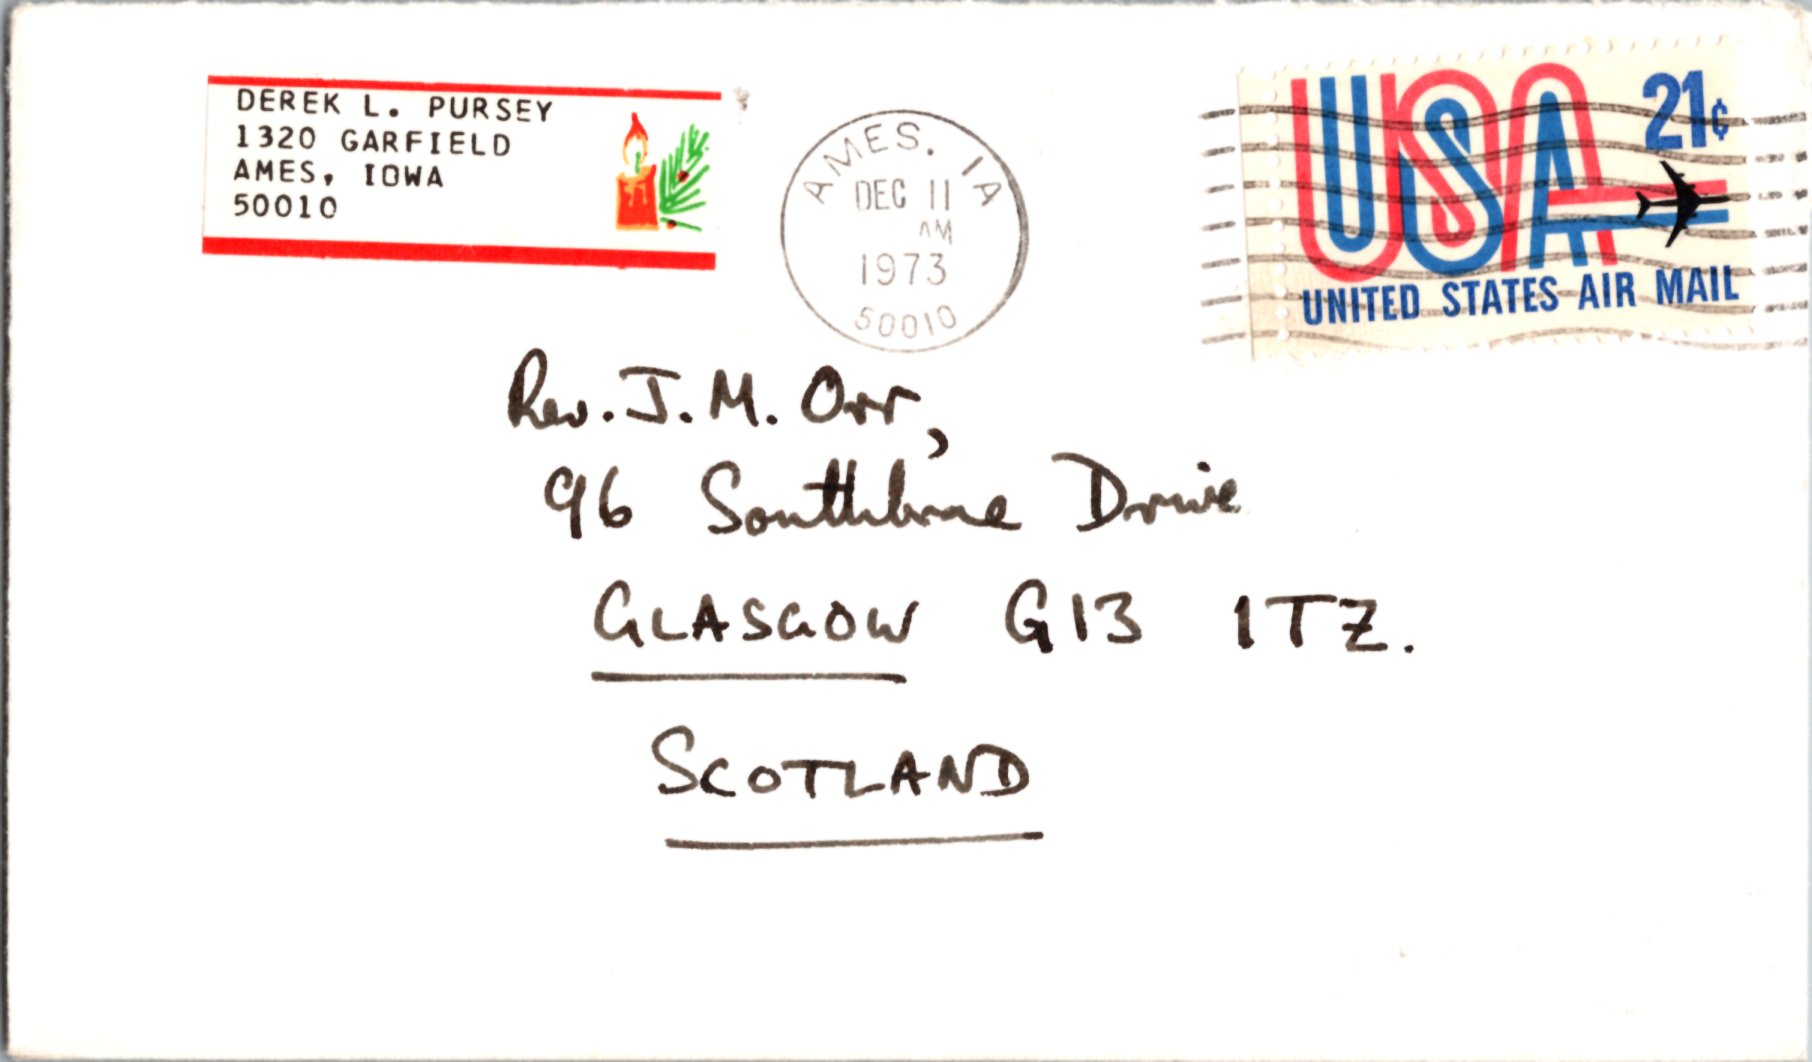 DEREK L. PURSEY
1320 GARFIELD
AMES, IOWA
50010
AMES, IA
DEC 11
AM
1973
50010
USA 21¢
UNITED STATES AIR MAIL
Rev. J. M. Orr,
96 Southbrae Drive
GLASGOW G13 1TZ.
SCOTLAND